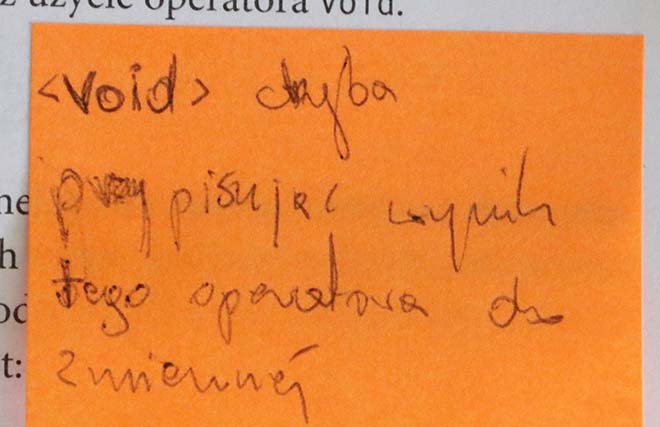 z użycie operatora void.
<void> chyba
ne
przypisując wynik
h
tego operatora do
od
zmiennej
t: